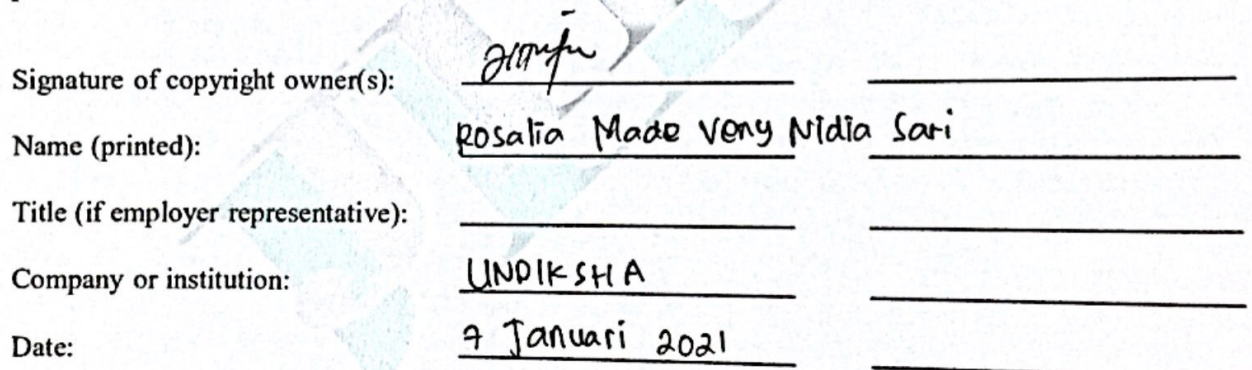 Signature of copyright owner(s):
Name (printed): Rosalia Made Veny Nidia Sari
Title (if employer representative):
Company or institution: UNDIKSHA
Date: 7 Januari 2021